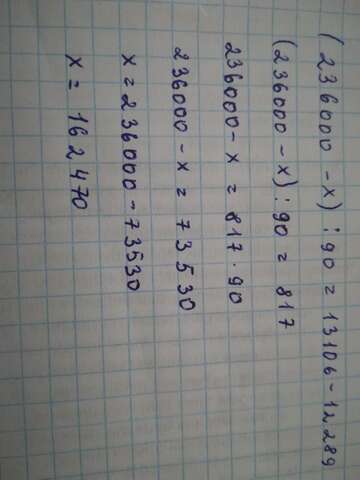 (236000 - x) : 90 = 13106 - 12289
(236000 - x) : 90 = 817
236000 - x = 817 · 90
236000 - x = 73530
x = 236000 - 73530
x = 162470